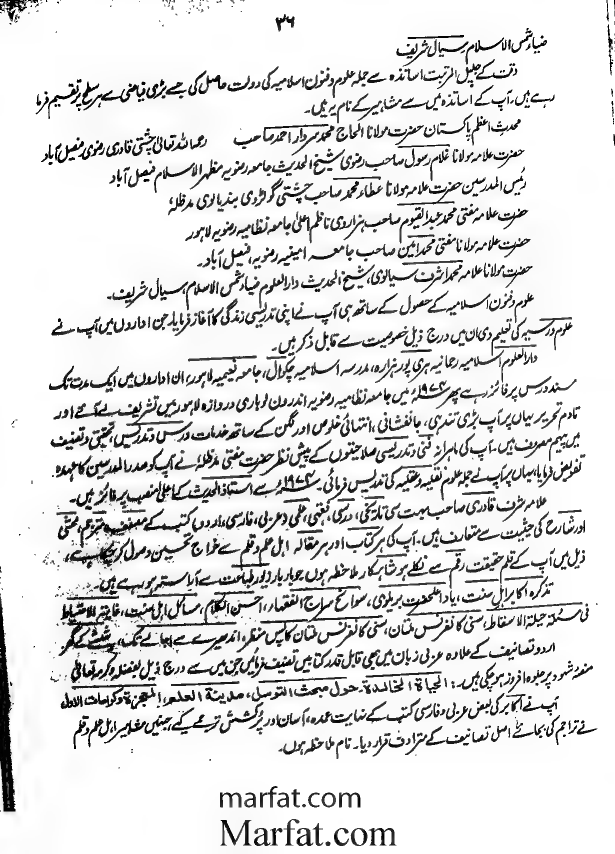 ۳۶
ضیاء شمس الاسلام سیال شریف
وقت کے جلیل المرتبت اساتذہ سے جملہ علوم و فنون اسلامیہ کی دولت حاصل کی جسے بڑی فیاضی سے ہر سطح پر تقسیم فرما
رہے ہیں، آپ کے اساتذہ میں سے مشاہیر کے نام یہ ہیں۔
محدث اعظم پاکستان حضرت مولانا الحاج محمد سردار احمد صاحب رحمہ اللہ تعالیٰ چشتی قادری رضوی فیصل آباد
حضرت علامہ مولانا غلام رسول صاحب رضوی شیخ الحدیث جامعہ رضویہ مظہر الاسلام فیصل آباد
رئیس المدرسین حضرت علامہ مولانا عطاء محمد صاحب چشتی گولڑوی بندیالوی مدظلہ،
حضرت علامہ مفتی محمد عبد القیوم صاحب ہزاروی ناظم اعلیٰ جامعہ نظامیہ رضویہ لاہور
حضرت علامہ مولانا مفتی محمد امین صاحب جامعہ امینیہ رضویہ، فیصل آباد۔
حضرت مولانا علامہ محمد اشرف سیالوی، شیخ الحدیث دارالعلوم ضیاء شمس الاسلام، سیال شریف۔
علوم و فنون اسلامیہ کے حصول کے ساتھ ہی آپ نے اپنی تدریسی زندگی کا آغاز فرمایا، جن اداروں میں آپ نے
علوم درسیہ کی تعلیم دی ان میں درج ذیل خصوصیت سے قابل ذکر ہیں۔
دارالعلوم اسلامیہ رحمانیہ ہری پور ہزارہ، مدرسہ اسلامیہ چکوال، جامعہ نعیمیہ لاہور، ان اداروں میں ایک مدت تک
مسند درس پر فائز رہے پھر ۱۹۷۴ء میں جامعہ نظامیہ رضویہ اندرون لوہاری دروازہ لاہور میں تشریف لے آئے اور
تادم تحریر یہاں پر آپ بڑی تندہی، جانفشانی، انتہائی خلوص اور لگن کے ساتھ خدمات درس و تدریس، تحقیق و تصنیف
میں پیہم مصروف ہیں۔ آپ کی ماہرانہ فنی و تدریسی صلاحیتوں کے پیش نظر حضرت مفتی مدظلہ نے آپ کو صدر المدرسین کا عہدہ
تفویض فرمایا، یہاں پر آپ نے جملہ علوم نقلیہ و عقلیہ کی تدریس فرمائی۔ سے استاذ الحدیث کے اعلیٰ منصب پر فائز ہیں۔
علامہ شرف قادری صاحب بہت سی تاریخی، درسی، فقہی، علمی و عربی، فارسی، اردو کتب کے مصنف، مترجم، محشی
اور شارح کی حیثیت سے متعارف ہیں۔ آپ کی ہر کتاب اور ہر مقالہ اہل علم و قلم سے خراج تحسین وصول کر چکا ہے،
ذیل میں آپ کے قلم حقیقت رقم سے نکلے ہوئے شاہکار ملاحظہ ہوں جو بار بار زیور طباعت سے آراستہ ہو رہے ہیں۔
تذکرہ اکابر اہل سنت، یاد اعلیٰحضرت بریلوی، سوانح سراج الفقہاء، احسن الکلام، مسائل اہل سنت، غایۃ الاحتیاط
فی مسئلۃ حیلۃ الاسقاط، سنی کانفرنس ملتان، سنی کانفرنس ملتان کا پس منظر، اندھیرے سے اجالے تک، شیشے کے گھر
اردو تصانیف کے علاوہ عربی زبان میں بھی قابل قدر کتابیں تصنیف فرمائیں جن میں سے درج ذیل بفضلہ و کرمہ تعالیٰ
منصہ شہود پر جلوہ افروز ہو چکی ہیں۔ الحیاۃ الخالدۃ، حول مبحث التوسل، مدینۃ العلم، المعجزۃ وکرامات الاولیاء
آپ نے اکابر کی بعض عربی و فارسی کتب کے نہایت عمدہ، آسان اور پرکشش ترجمے کیے، جنہیں مشاہیر اہل علم و قلم
نے تراجم کی بجائے اصل تصانیف کے مترادف قرار دیا۔ نام ملاحظہ ہوں۔
marfat.com
Marfat.com